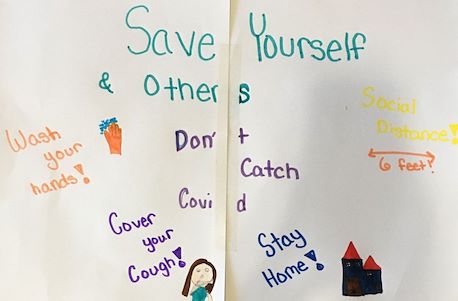 Save Yourself
& Others
Don't
Catch
Covid
Wash
your
hands!
Social
Distance!
6 feet!
Cover
your
Cough!
Stay
Home!